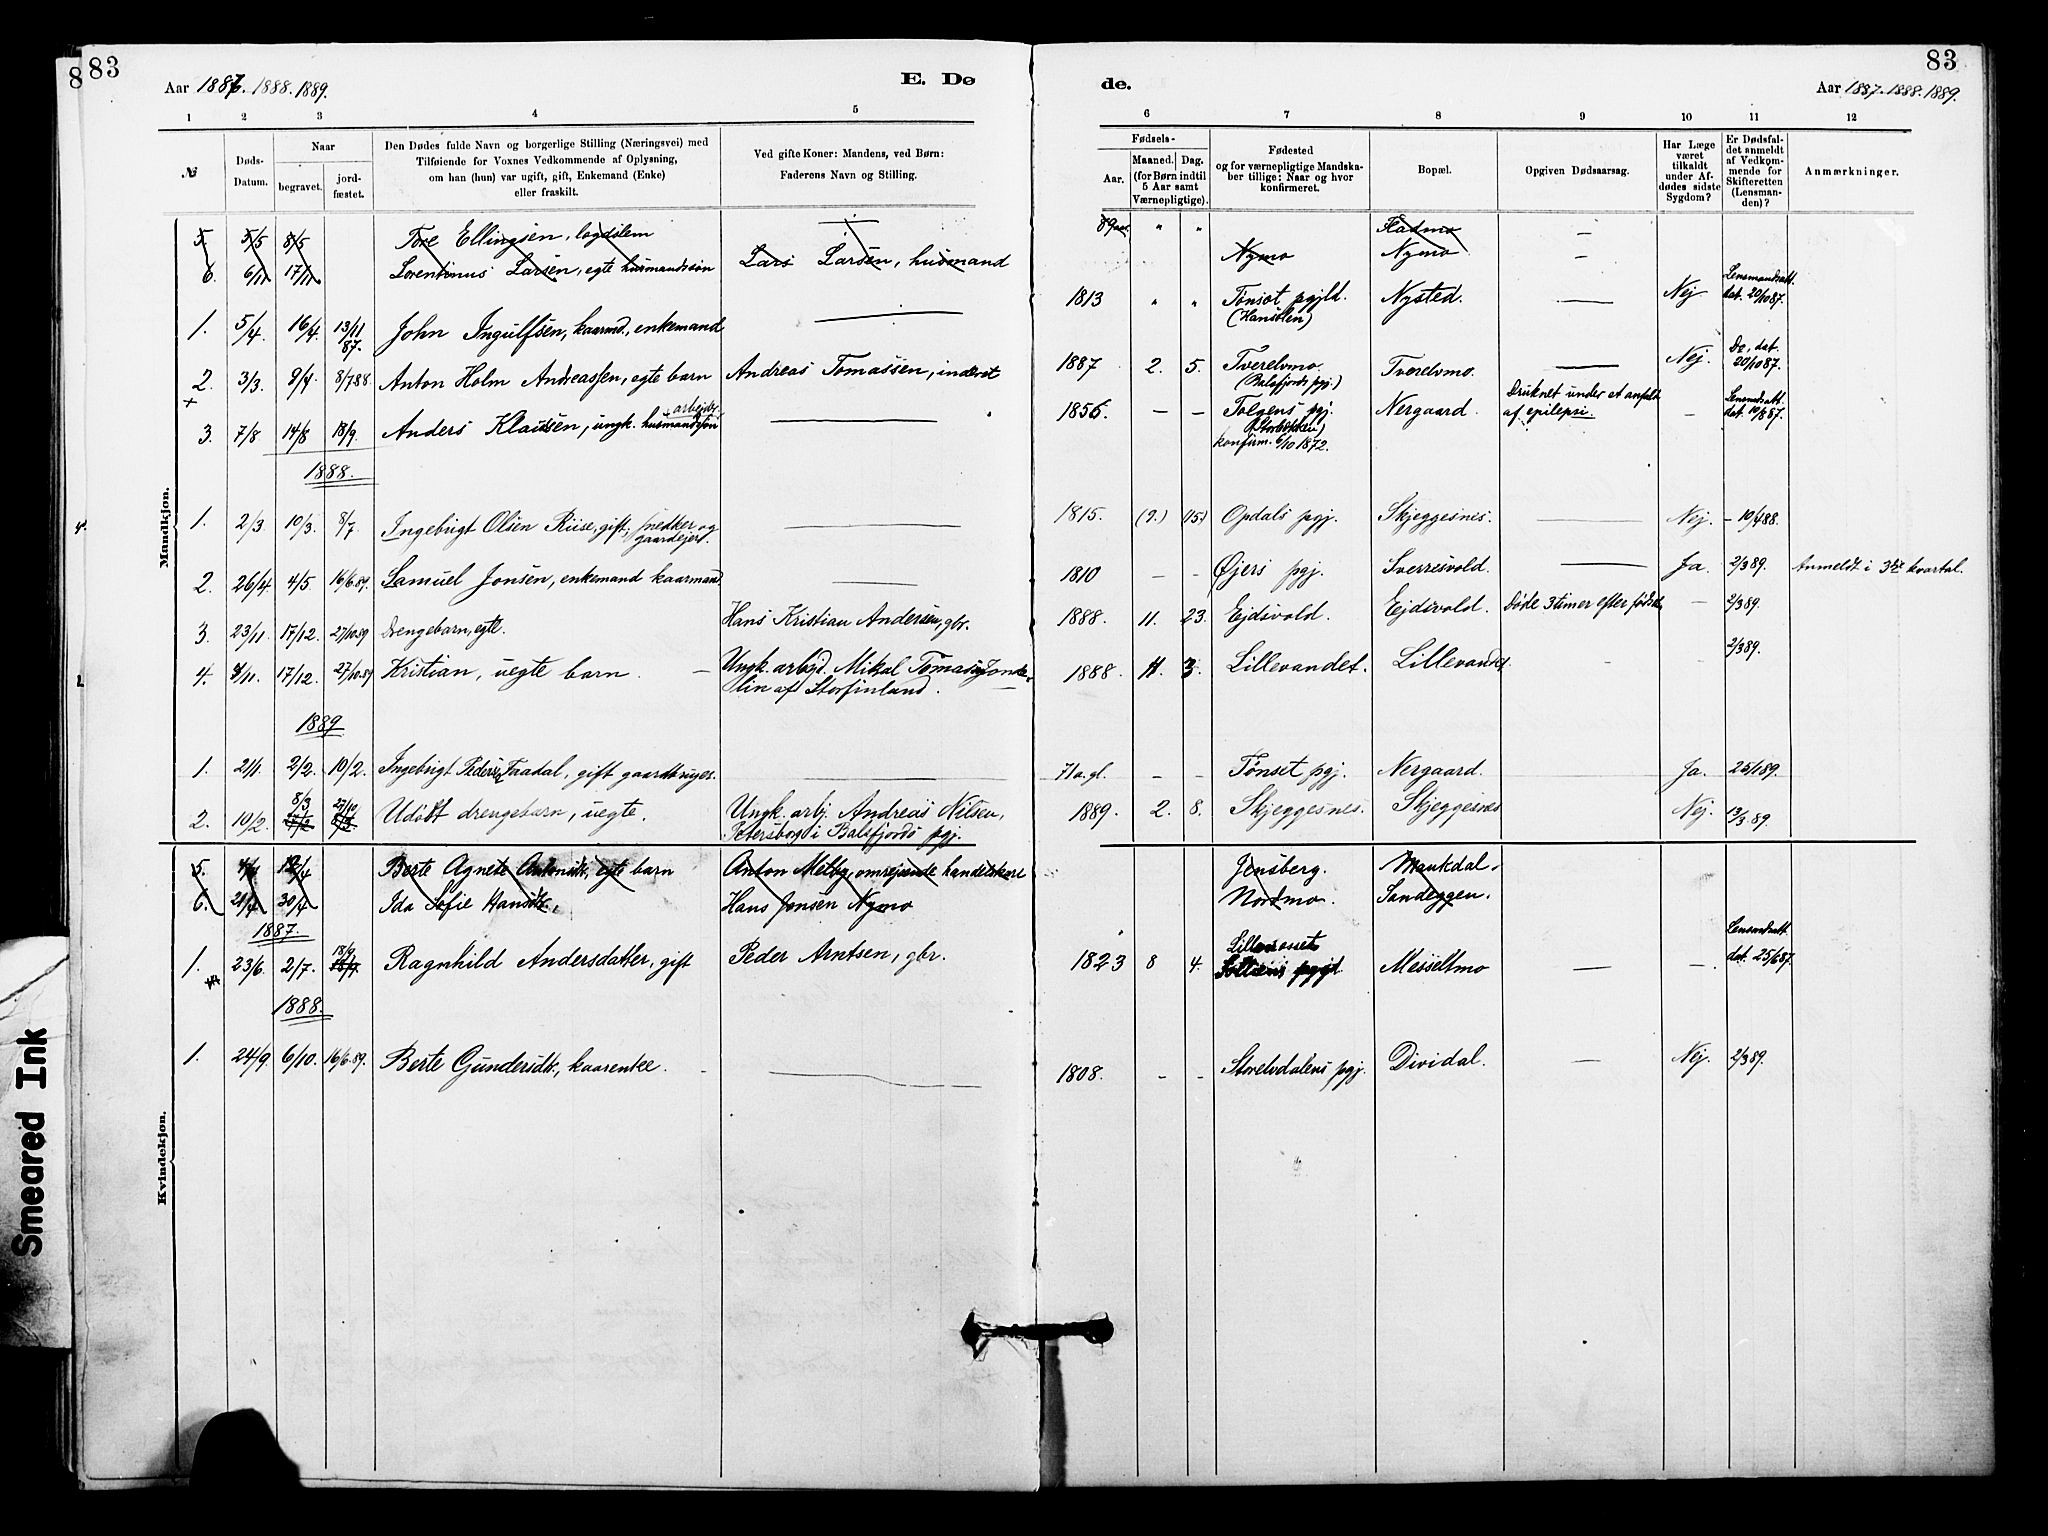 83
Aar 1887. 1888. 1889.
E. Dø
1 2 3 4 5
№
Døds-
Datum.
Naar
begravet.
jord-
fæstet.
Den Dødes fulde Navn og borgerlige Stilling (Næringsvei) med
Tilføiende for Voxnes Vedkommende af Oplysning,
om han (hun) var ugift, gift, Enkemand (Enke)
eller fraskilt.
Ved gifte Koner: Mandens, ved Børn:
Faderens Navn og Stilling.
Mandkjøn.
5. 5/5 8/5 Tore Ellingsen, lægdslem
6. 6/11 17/11 Lorentinus Larsen, egte husmandssøn Lars Larsen, husmand
1. 5/4. 16/4. 13/11 87. John Ingulfsen, kaarmd., enkemand
2. 3/3. 9/4. 8/7 88. Anton Holm Andreassen, egte barn Andreas Tomassen, inderst
3. 7/8 14/8 18/9. Anders Klausen, ungk. husmandssøn + arbejder
1888.
1. 2/3. 10/3. 8/7. Ingebrigt Olsen Riise, gift, snedker og
gaardejer.
2. 26/4. 4/5. 16/6.89. Samuel Jonsen, enkemand kaarmand
3. 23/11. 17/12. 27/10.89 Drengebarn, egte. Hans Kristian Andersen, gbr.
4. 8/11. 17/12. 27/10.89 Kristian, uegte barn. Ungk. arbejd. Mikal Tomas
af Storfinland.
1889
1. 21/1. 2/2. 10/2. Ingebrigt Pedersen Faadal, gift gaardbruger.
2. 10/2. 8/3 27/10 Udøbt drengebarn, uegte. Ungk. arbj. Andreas Nilsen,
Petersborg i Balsfjords pgj.
Kvindekjøn.
5. 12/4 Berte Agnete Antonidtr., egte barn Anton Melby, omrejsende handelskarl
6. 21/4 30/4 Ida Sofie Hansdtr., Hans Jensen Nymo
1887.
1. 23/6. 2/7. 18/9. Ragnhild Andersdatter, gift Peder Arntsen, gbr.
1888.
1. 24/9. 6/10. 16/6.89. Berte Gundersdtr., kaarenke.
83
de.
Aar 1887. 1888. 1889.
6 7 8 9 10 11 12
Fødsels-
Aar.
Maaned. Dag.
(for Børn indtil
5 Aar samt
Værnepligtige).
Fødested
og for værnepligtige Mandska-
ber tillige: Naar og hvor
konfirmeret.
Bopæl.
Opgiven Dødsaarsag.
Har Læge
været
tilkaldt
under Af-
dødes sidste
Sygdom?
Er Dødsfal-
det anmeldt
af Vedkom-
mende for
Skifteretten
(Lensman-
den)?
Anmærkninger.
89 aar. " " Fladmo —
Nymo Nymo —
1813 " " Tönset pgjld.
(Hansølen) Nysted. — Nej Lensmandsatt.
dat. 20/10 87.
1887 2. 5. Tverelvmo.
(Balsfjords pgj.) Tverelvmo. — Nej. Do, dat.
20/10 87.
1856 — — Tolgens pgj.
konfirm. 6/10 1872. Nergaard. Druknet under et anfald
af epilepsi. — Lensmdsatt.
dat. 10/8 87.
1815. (9.) (15) Opdals pgj. Skjeggesnes. — Nej. — 10/4 88.
1810 — — Øjers pgj. Sverresvold. — Ja. 2/3 89. Anmeldt i 3die kvartal.
1888. 11. 23. Ejdsvold. Ejdsvold. Døde 3 timer efter fødsel. — 2/3 89.
1888. 11. 3. Lillevandet. Lillevandet. 2/3 89.
71 a. gl. — — Tönset pgj. Nergaard. Ja. 25/1 89.
1889. 2. 8. Skjeggesnes. Skjeggesnes Nej. 13/3 89.
Jensberg. Maukdal.
Nordmo. Sandeggen.
1823 8 4. Messeltmo — —. Lensmdsatt.
dat. 25/6 87.
1808. — — Storelvdalens pgj. Dividal. — Nej. 2/3 89.
Smeared Ink